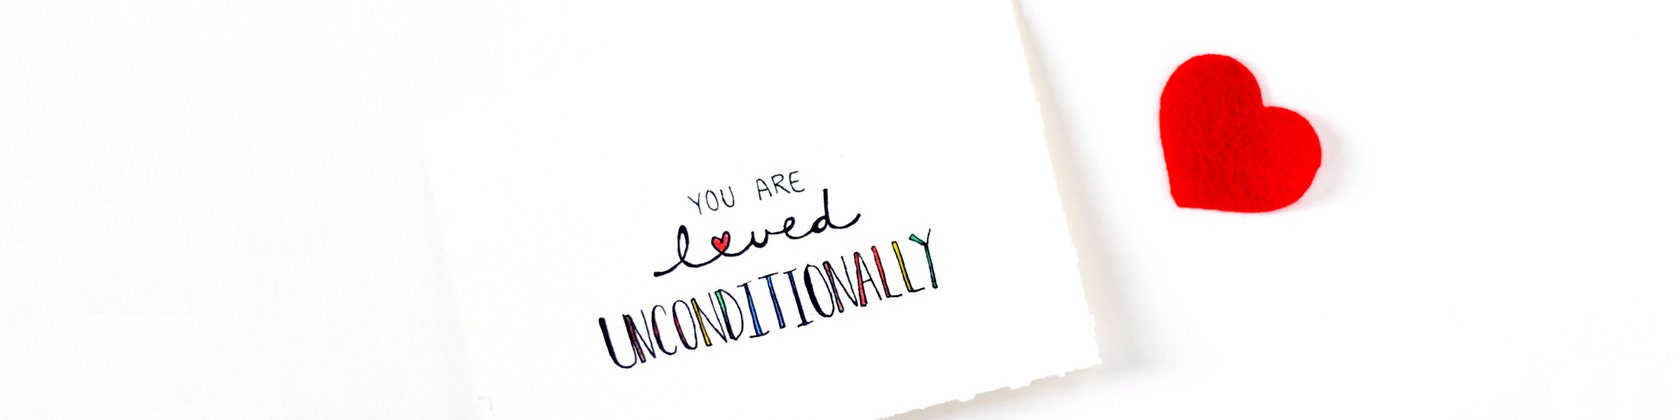 YOU ARE
loved
UNCONDITIONALLY